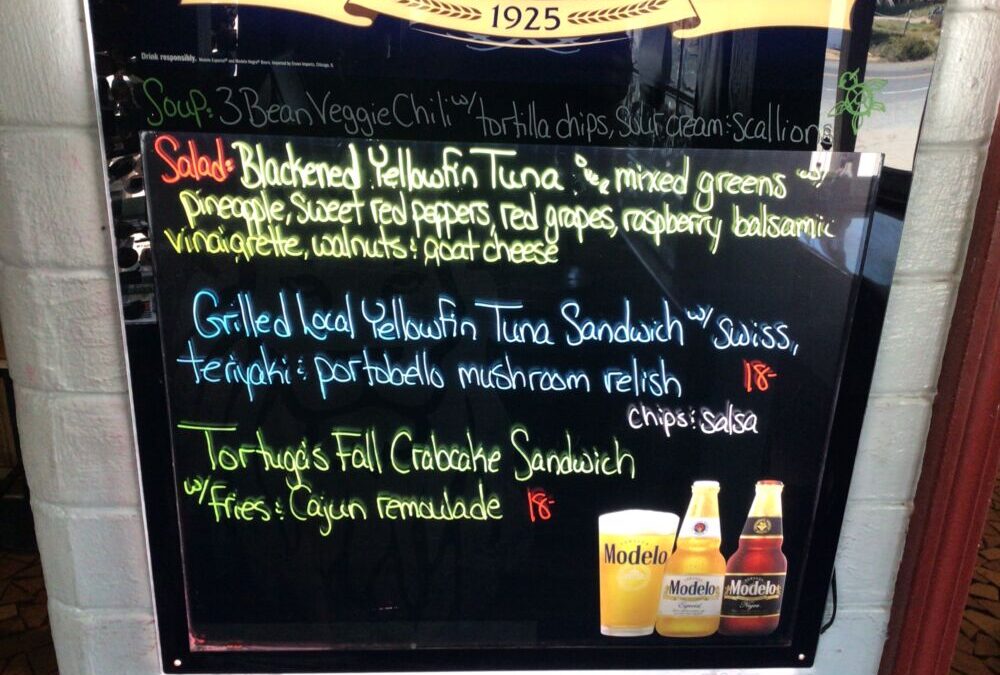 1925
Drink responsibly.
Soup: 3 Bean Veggie Chili w/ tortilla chips, sour cream : scallions
Salad: Blackened Yellowfin Tuna mixed greens w/
pineapple, sweet red peppers, red grapes, raspberry balsamic
vinaigrette, walnuts : goat cheese
Grilled Local Yellowfin Tuna Sandwich w/ swiss,
teriyaki : portobello mushroom relish 18-
chips : salsa
Tortuga's Fall Crabcake Sandwich
w/ fries : Cajun remoulade 18-
Modelo
Modelo
Especial
Modelo
Negra